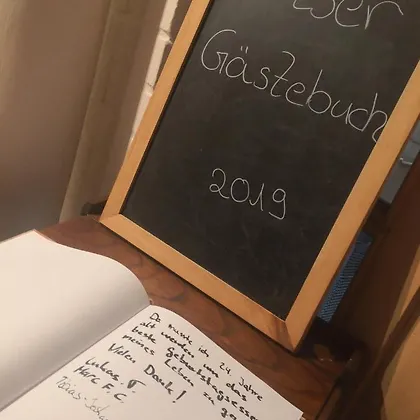 Gästebuch
2019
Da musste ich 24 Jahre
alt werden um das
beste Geburtstagsessen
meines Leben zu
Vielen Dank!
Lukas
Marc F. C.
Tobias